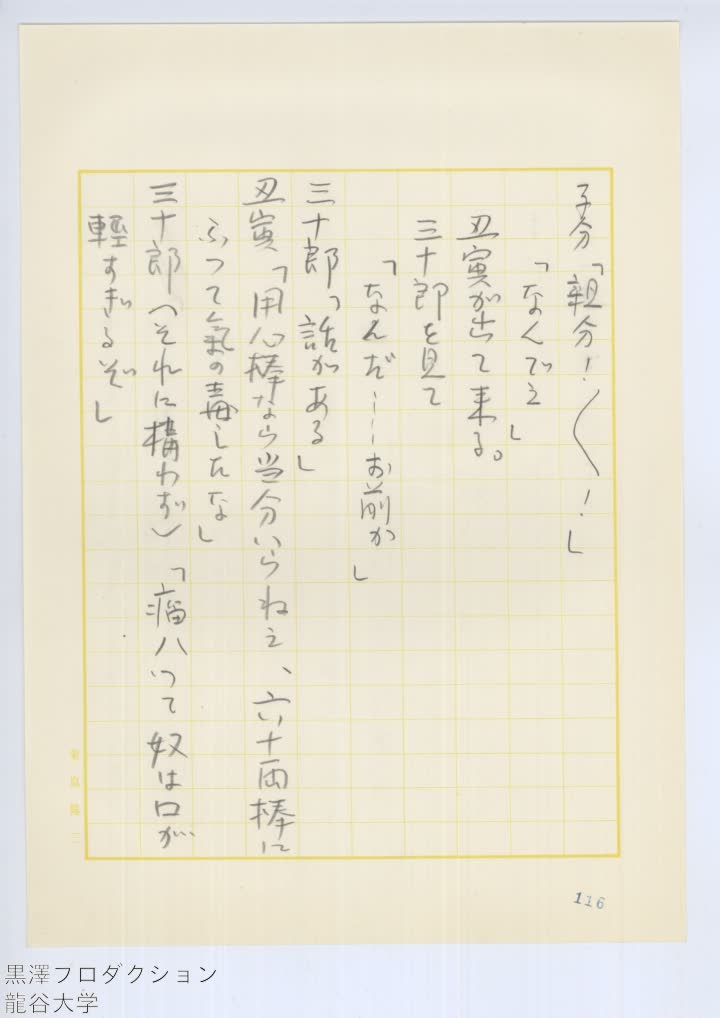 子分「親分！〱！」
「なんでえ」
丑寅が出て来る。
三十郎を見て
「なんだ……お前か」
三十郎「話がある」
丑寅「用心棒なら当分いらねえ、六十両棒に
ふつて氣の毒したな」
三十郎（それに構わず）「瘤八つて奴は口が
輕すぎるぞ」
116
黒澤フロダクション
龍谷大学